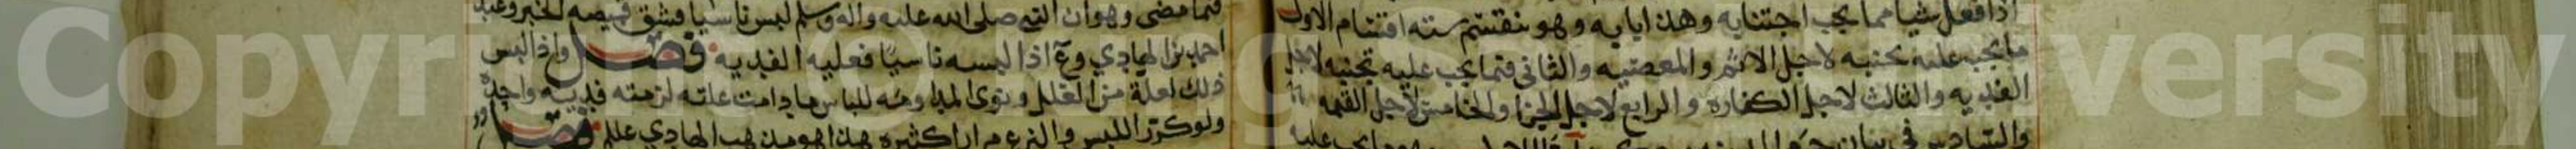 اذا فعل شيا مما يجب اجتنابه وهذا بابه وهو ينقسم سته اقسام الاول
ما يجب عليه تجنبه لاجل الاثم والمعصيه والثاني فيما يجب عليه تجنبه لاجل
الفديه والثالث لاجل الكفاره والرابع لاجل الجزا والخامس لاجل القيمه
والسادس في بيان
فيما مضى وهو ان النبي صلى الله عليه واله وسلم لبس ناسيا فشق قميصه لخبر وعند
احمد بن الهادي وع اذا لبسه ناسيا فعليه الفديه فصل واذا لبس
ذلك لعلة من العلل ونوى المداومه للباس ما دامت علته لزمته فديه واحدة
ولو كرر اللبس والنزع مرارا كثيره هذا هو مذهب الهادي عللم فصل